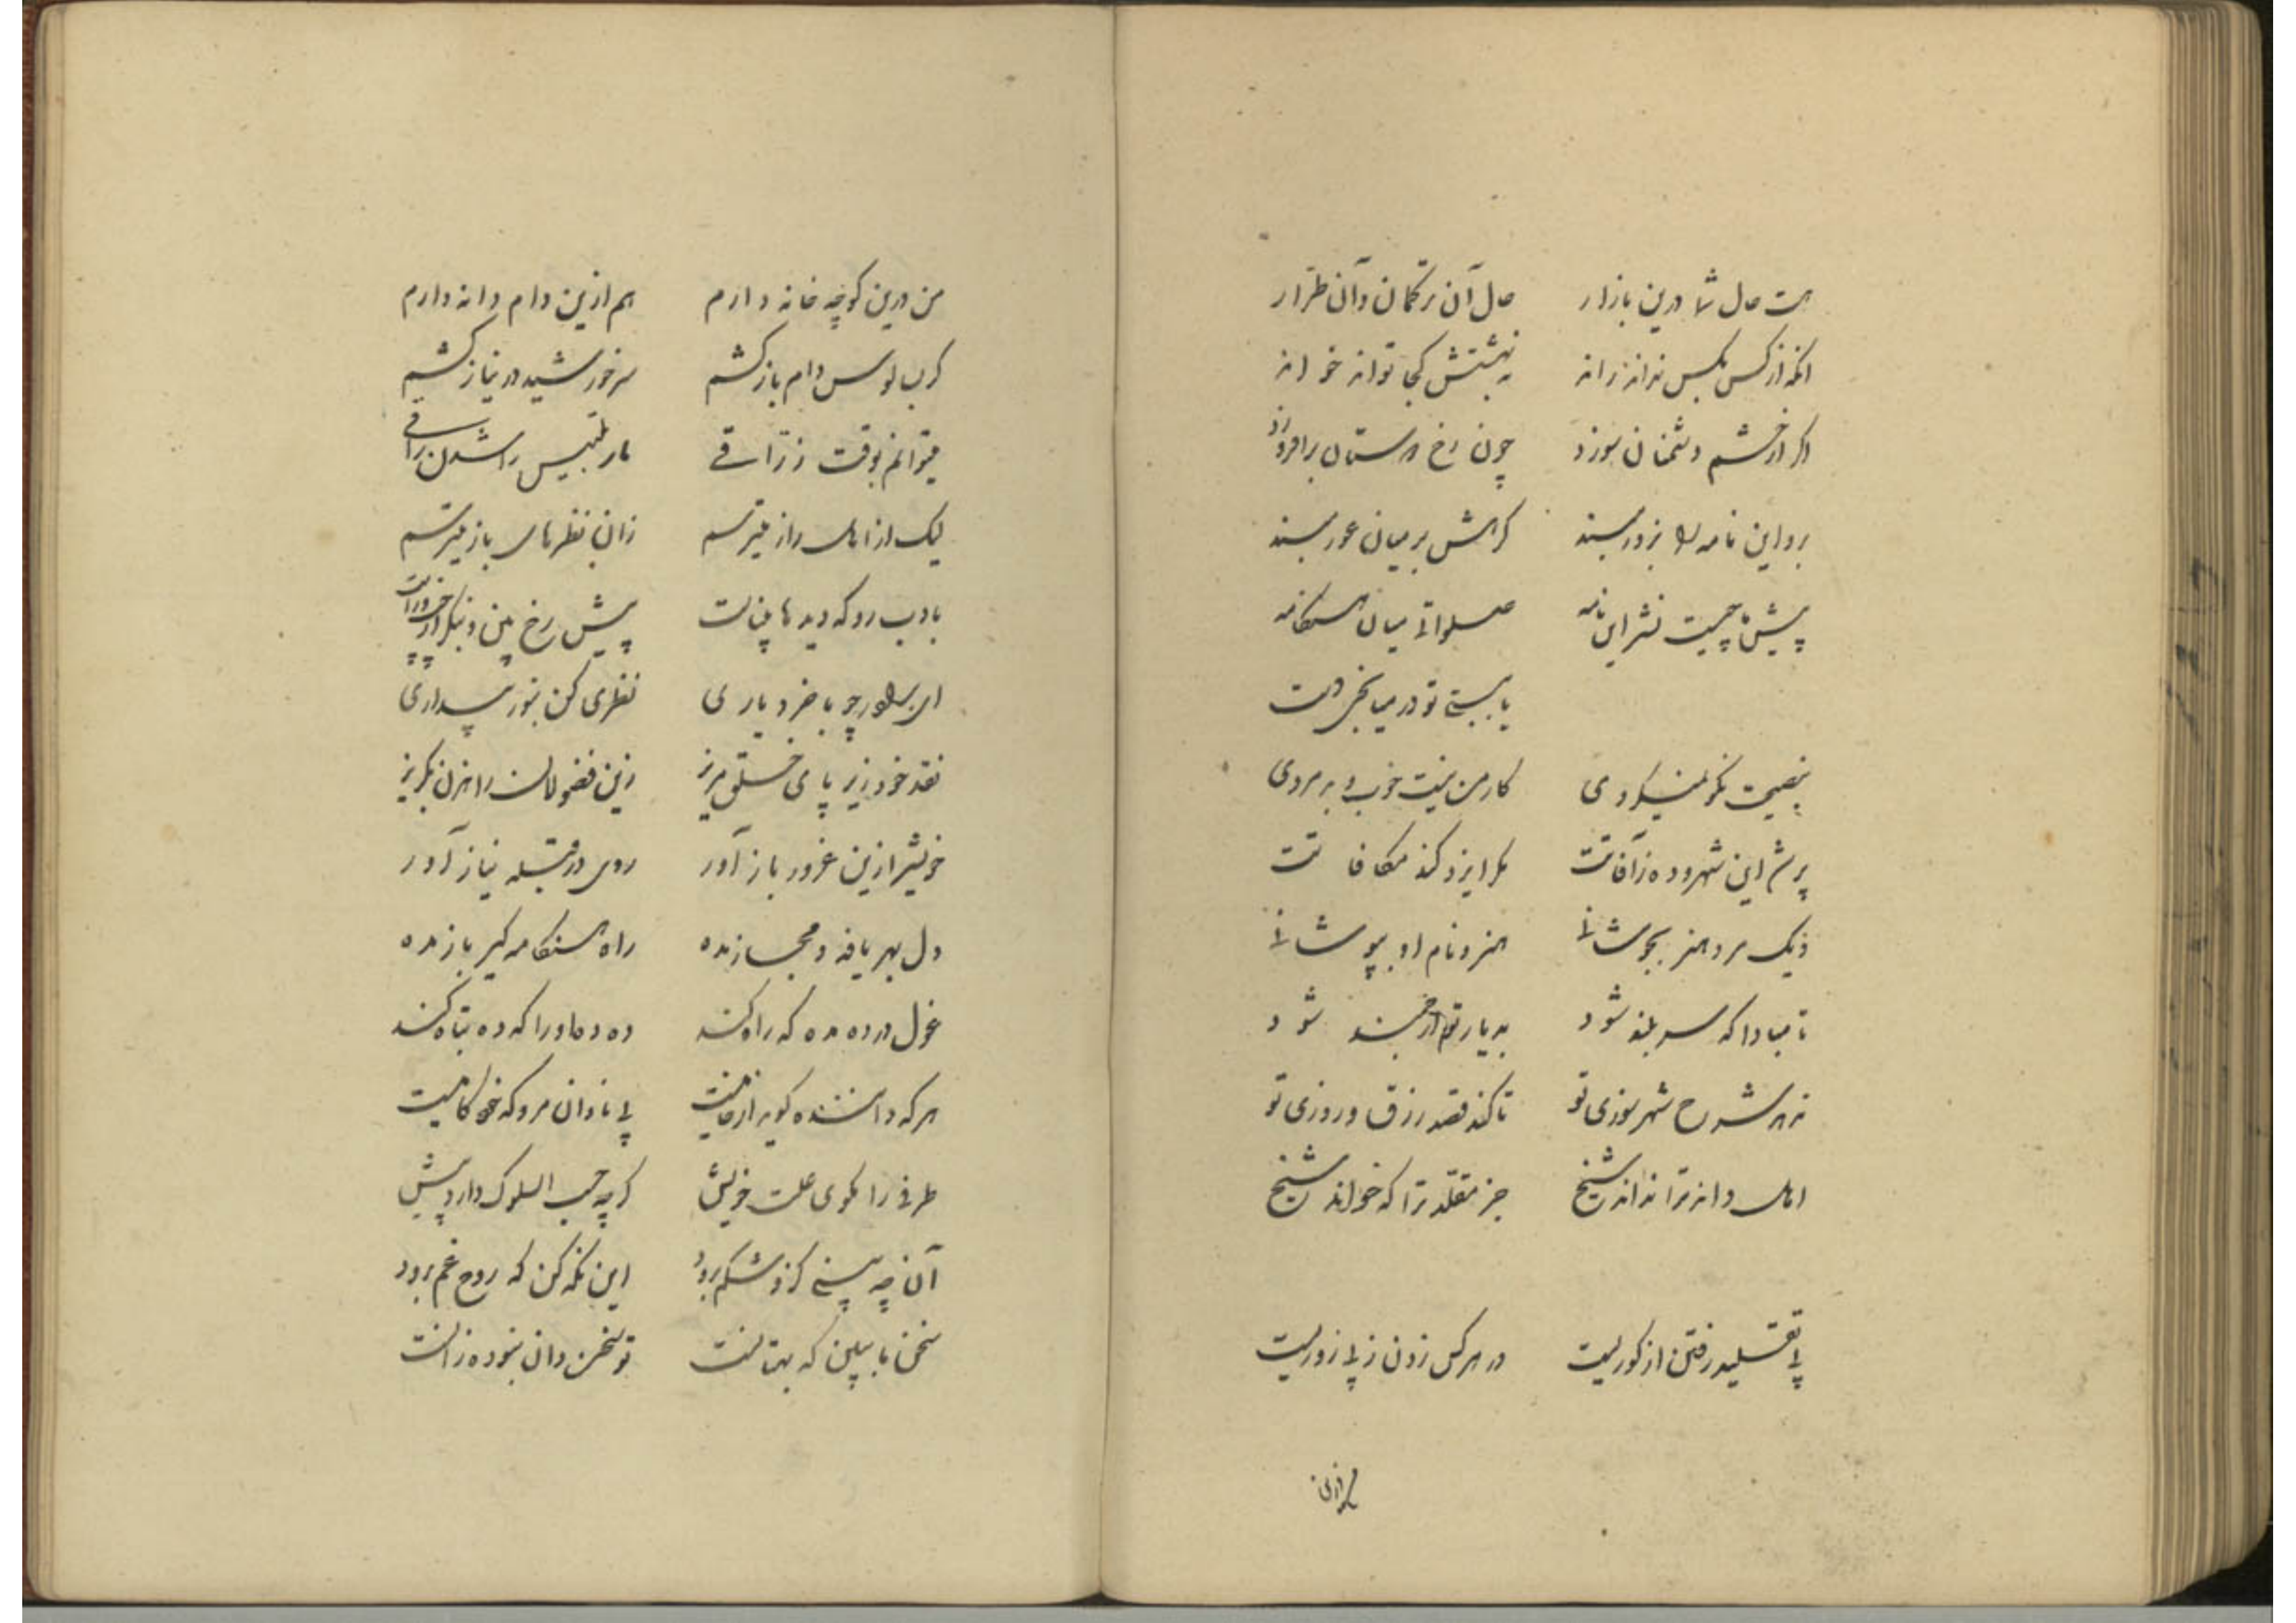 هست حال شما درین بازار حال آن ترکمان و آن طرار
انکه از کس بکس نداند راند نه بهشتش کجا تواند خواند
اکر از خشم دشمنان سوزد چون رخ دوستان برافروزد
برو این نامه را بزور مبند کرهش بر میان عور مبند
پیش ما چیست نشر این نامه صلواتی میان هنکامه
یا ببستی تو در میانجی دست
بنصیحت نکو نمیکردی کار من نیست خوب و بد مردی
پر شد این شهر و ده ز آفاتت مکر ایزد کند مکافاتت
نیک مرد هنر بجوشانی هنر و نام او بپوشانی
تا مبادا که سر بلند شود بدیار تو ارجمند شود
نه هر شرح شهر سوزی تو تا کند قصد رزق و روزی تو
اهل دانه ترا نداند شیخ جز مقلد ترا که خواند شیخ
پی تقلید رفتن از کوریست در هر کس زدن ز بی زوریست
من درین کوچه خانه دارم هم ازین دام دانه دارم
کر بسالوس دام باز کشم سر خورشید در نیاز کشم
میتوانم بوقت زراقی مار تلبیس را شدن راقی
لیک از اهل راز میترسم زان نظرهای باز میترسم
بادب رو که دیدها پیناست پیش رخ بین و نیکر از چپ و راست
ای پسر چو با خرد یاری نظری کن بنور بیداری
نقد خود زیر پای خلق مریز زین فضولان راهزن بکریز
خویش ازین غرور باز آور روی در قبله نیاز آور
دل بهر یافه و مجاز مده راه هنکامه کیر باز مده
غول در ده مده که راه کند ده دها ورا که ده تباه کند
هر که داننده کوید از خامیست پی نادان مرو که خود کامیست
طرفی را بکوی علت خویش کرچه حب السلوک دارد پیش
آن چه بینی کزو شکم برود این نکه کن که روح غم برود
سخن ما ببین که بهتانست تو سخن دان نبوده زانست